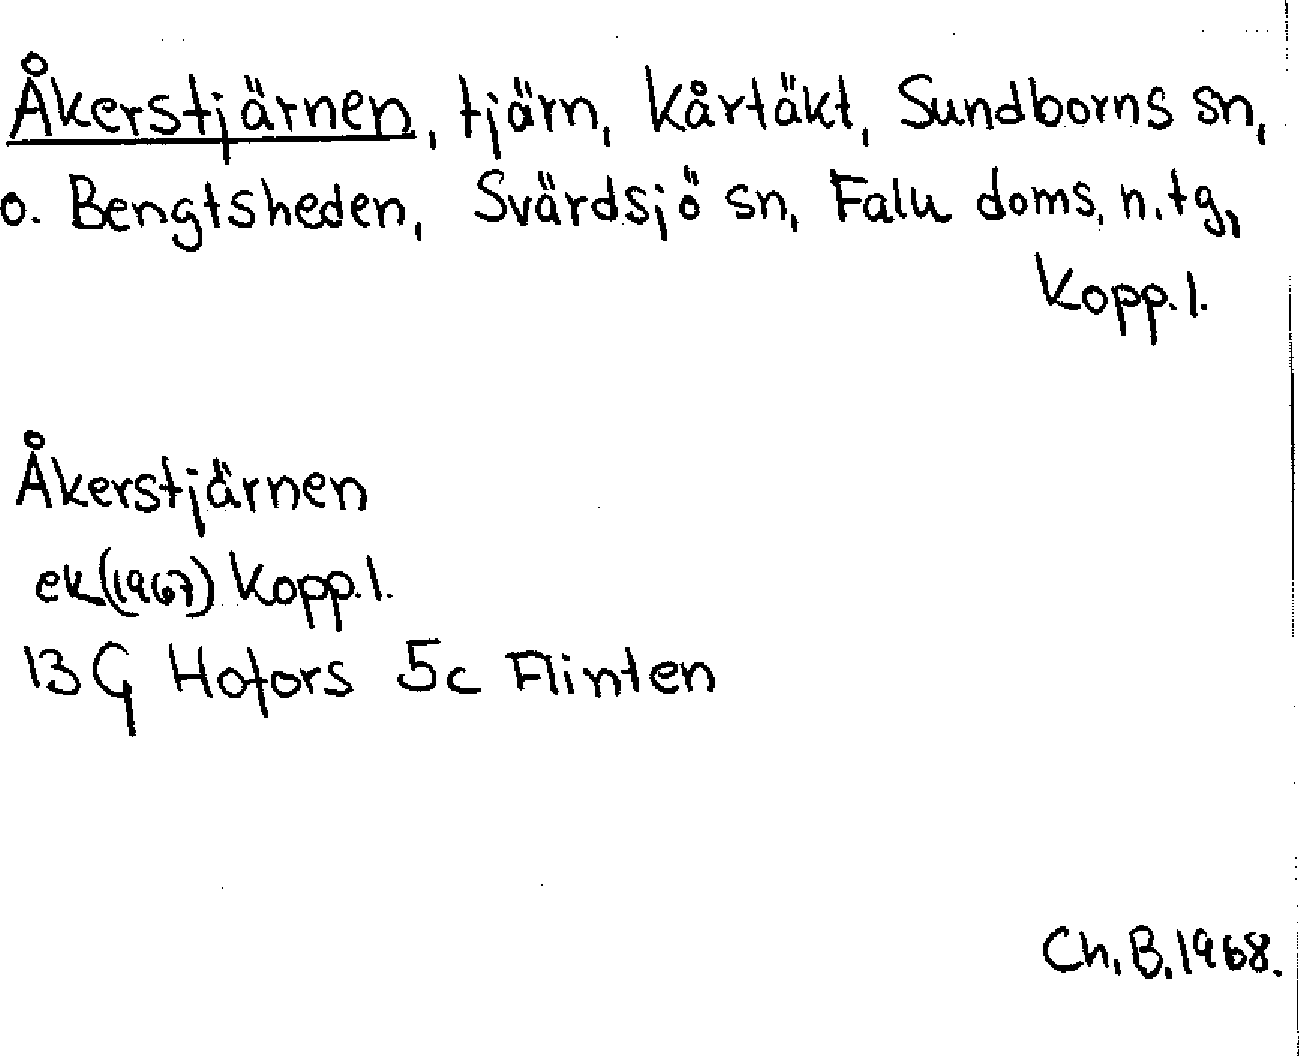 Åkerstjärnen, tjärn, Kårtäkt, Sundborns sn,
o. Bengtsheden, Svärdsjö sn, Falu doms. n. tg,
Kopp. l.
Åkerstjärnen
ek (1967) Kopp. l.
13 G Hofors 5c Flinten
Ch. B. 1968.